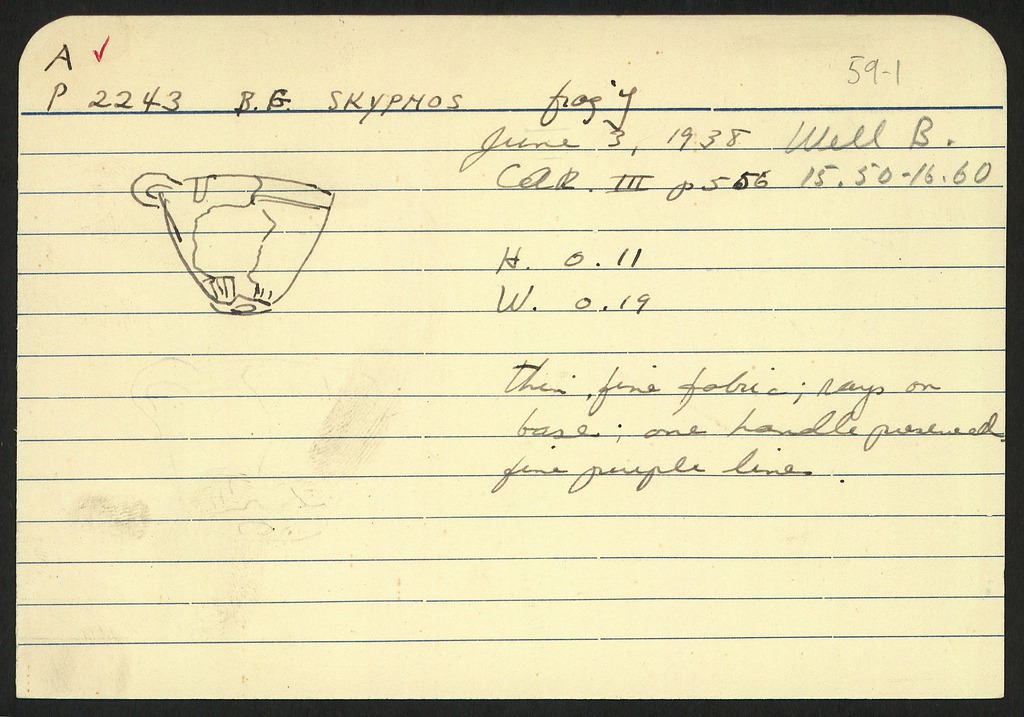 A ✓
59-1
P 2243 B.G. SKYPHOS frag'y
June 3, 1938 Well B.
COR. III p 556 15.50-16.60
H. 0.11
W. 0.19
thin, fine fabric; rays on
base; one handle preserved
fine purple lines.